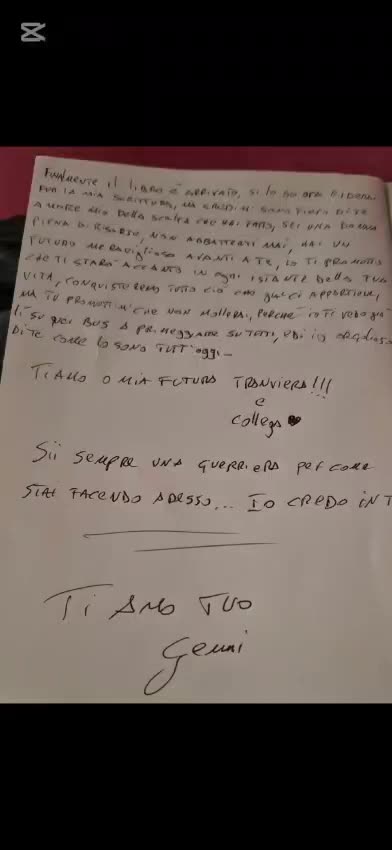 FINALMENTE IL LIBRO È ARRIVATO, SI LO SO ORA RIDERAI
PER LA MIA SCRITTURA, MA CREDIMI SONO FIERO DI TE
AMORE MIO DELLA SCELTA CHE HAI FATTO, SEI UNA DONNA
PIENA DI RISORSE, NON ABBATTERTI MAI, HAI UN
FUTURO MERAVIGLIOSO AVANTI A TE, IO TI PROMETTO
CHE TI STARÒ ACCANTO IN OGNI ISTANTE DELLA TUA
VITA, CONQUISTEREMO TUTTO CIÒ CHE CI APPARTIENE,
MA TU PROMETTIMI CHE NON MOLLERAI, PERCHÉ IO TI VEDO GIÀ
LÌ SU QUEI BUS A PRIMEGGIARE SU TUTTI, ED IO ORGOGLIOSO
DI TE COME LO SONO TUTT'OGGI-
TI AMO O MIA FUTURA TRANVIERA!!!
e
collega
Sii SEMPRE UNA GUERRIERA PER COME
STAI FACENDO ADESSO... IO CREDO IN T
TI AMO TUO